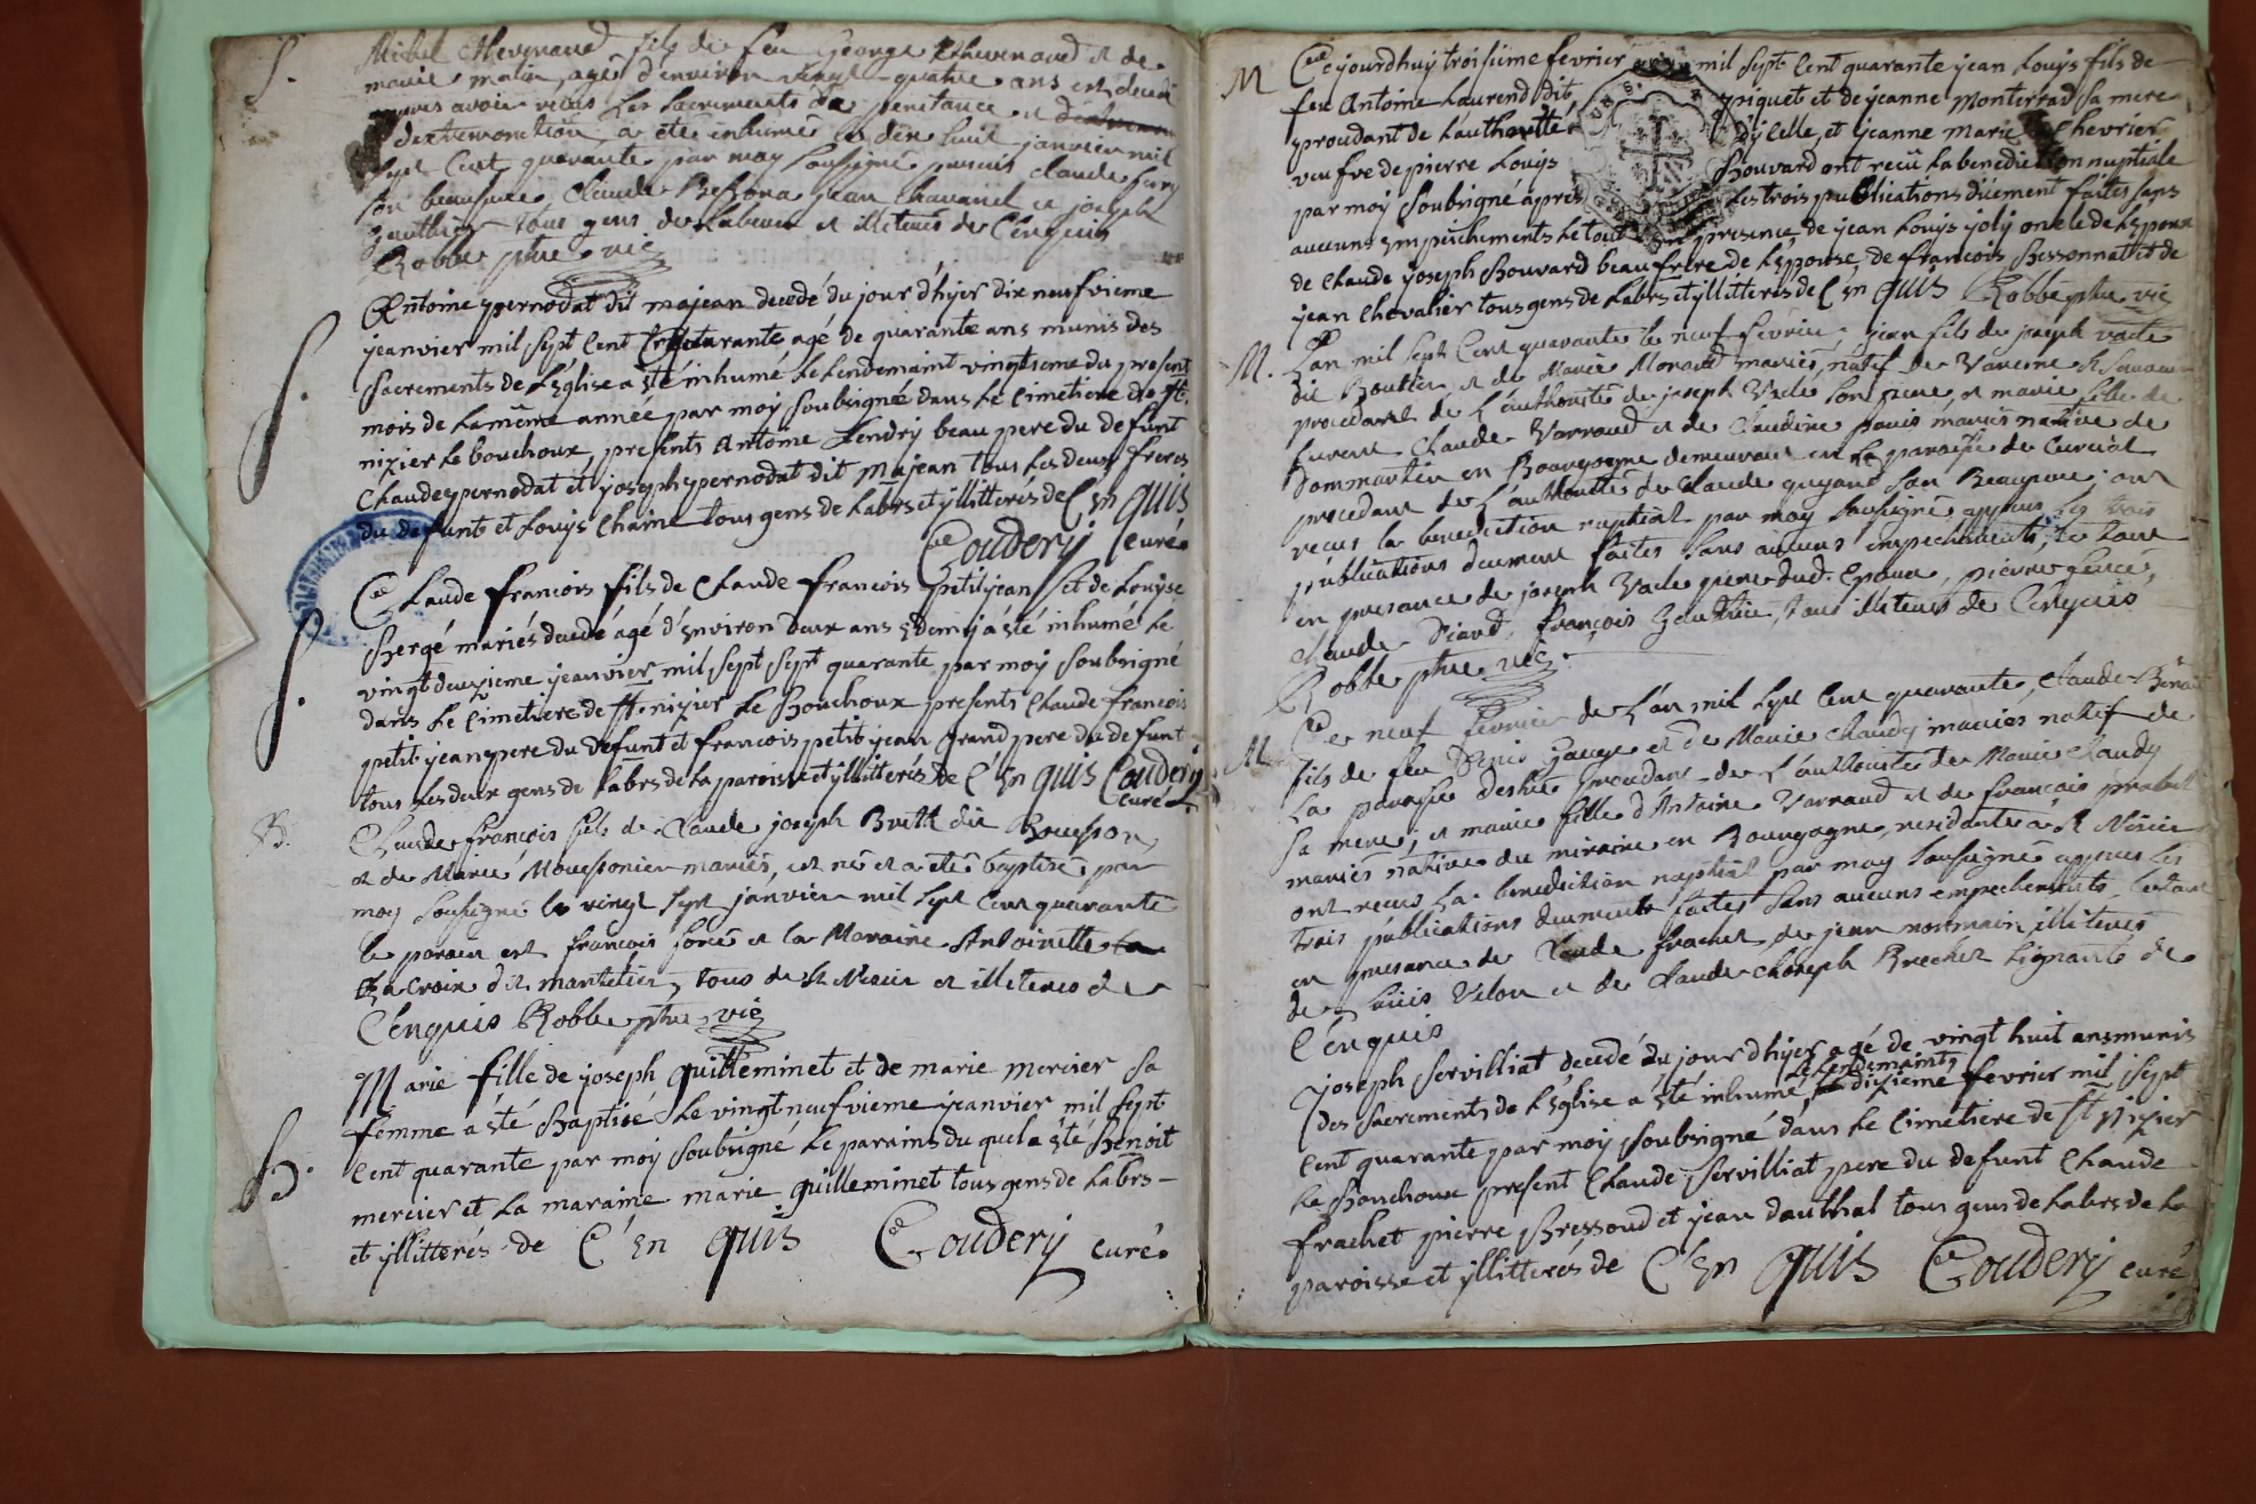 S.
Michel Thevenaud fils de feu George Thevenaud et de
marie marin, agé d'environ vingt-quatre ans est decedé
apres avoir recus les sacrements de penitance et
d'extremonction, a eté inhumé le dix huit janvier mil
sept cent quarante par moy soussigné presents claude
son beaufrere, Claude Jean Chavanel et joseph
gauthier tous gens de labeur et illiterés de Ce enquis
Robbe ptre vic
S.
Antoine pernodat dit majean decedé du jour d'hÿer dix neufvieme
jeanvier mil sept cent quarante agé de quarante ans munis des
sacrements de L'Eglise a êté inhumé le Lendemaint vingtieme du present
mois de la même année par moÿ soubsigné dans le Cimetiere de St.
nizier le bouchoux, presents Antoine Lendrÿ beau pere du defunt
Claude pernodat et joseph pernodat dit Majean tous les deux freres
du defunt et Louÿs Chaine tous gens de Labrs et ÿllitterés de C'En quis
Couderÿ curé
S.
Claude francois fils de Claude francois petitjean et de Louÿse
Bergé mariés decedé agé d'Environ deux ans Edemÿ á êté inhumé le
vingtdeuxieme jeanvier mil sept sept quarante par moÿ soubsigné
dans le Cimetiere de St. nizier le Bouchoux presents Claude francois
petitjean pere du defunt et francois petitjean grand pere du defunt
tous les deux gens de Labrs de la paroisse et ÿllitterés de C'En quis Couderÿ
curé
B.
Claude françois fils de Claude joseph Brett dit Bouysson,
et de Marie Moyssonier mariés, est né et a eté baptisé par
moy soussigné le vingt sept janvier mil sept cent quarante
le parain est françois foré et la Maraine Antoinette
La croix dit mantelier, tous de St Nisier et illeteres de
C'enquis Robbe ptre vic
B.
Marie fille de joseph guilleminet et de marie mercier sa
femme á êté Baptisé Le vingtneufvieme jeanvier mil sept
cent quarante par moÿ soubsigné le parains du quel a êté Benoit
mercier et La maraine marie guilleminet tous gens de Labrs
et ÿllitterés de C'En quis Couderÿ curé
M
Ce ejourdhuy troisiéme fevrier mil sept Cent quarante jean Louÿs fils de
feu Antoine Laurend dit piquet et de jeanne Monterrad sa mere
proudant de L'authoritté d'ÿcelle, et jeanne marie Chevrier
veufve de pierre Louÿs Bouvard ont reçû La benediction nuptiale
par moÿ soubsigné áprés Les trois publications düement faites sans
aucuns Empêchements le tout En presence, de jean Louÿs jolÿ oncle de L'Epoux
de Claude joseph Bouvard beaufrere de L'Epouse, de francois Bessonnat et de
jean Chevalier tous gens de Labrs et ÿllitterés de C'En quis Robbe ptre vic
M.
L'an mil sept Cent quarante le neuf fevrier, jean fils de joseph Vacle
dit Boutier et de Marie Monard mariés, natif de Varenne St Sauveur
procedant de L'authorité de joseph Vacle son pere, et marie fille de
Laurent Claude Varraud et de Claudine mariés native de
Dommartin en Bourgogne demeurant en La paroisse de Curciat
procedant de L'authorité de Claude guyand son Beaupere; ont
recus la benediction nuptial par moy soussigné appres les trois
publications deument faites sans aucuns empechements, le tout
en presance de joseph Vacle pere dud. Epoux, pierre feucé,
Claude Piard, françois gauthier, tous illiterés de Ce enquis
Robbe ptre vic.
M
Ce neuf fevrier de L'an mil sept cent quarante, Claude Benoit
fils de feu Denis et de Marie Chandy mariés natif de
La paroisse procedant de L'authorité de Marie Chandy
sa mere; et marie fille d'Antoine Varraud et de françois
mariés native du miroire en Bourgogne, residante á St Nisier
ont recus La benediction nuptial par moy soussigné appres les
trois publications deuments faites sans aucuns empechements, le tout
en presance de Claude frachet, de jean normain illiterés
de Louis Velon et de Claude Choseph Brochet signants de
C'enquis
joseph Servilliat décedé du jour d'hÿer agé de vingt huit ans munis
des sacrements de L'Eglise á êté inhumé, Le Lendemaints dixieme fevrier mil sept
cent quarante par moÿ soubsigné dans le Cimêtiere de St Nizier
Le Bouchoux present Claude Servilliat pere du defunt Claude
frachet pierre Bressoud et jean dauthal tous gens de Labrs de La
paroisse et ÿllitterés de C'En quis Couderÿ curé